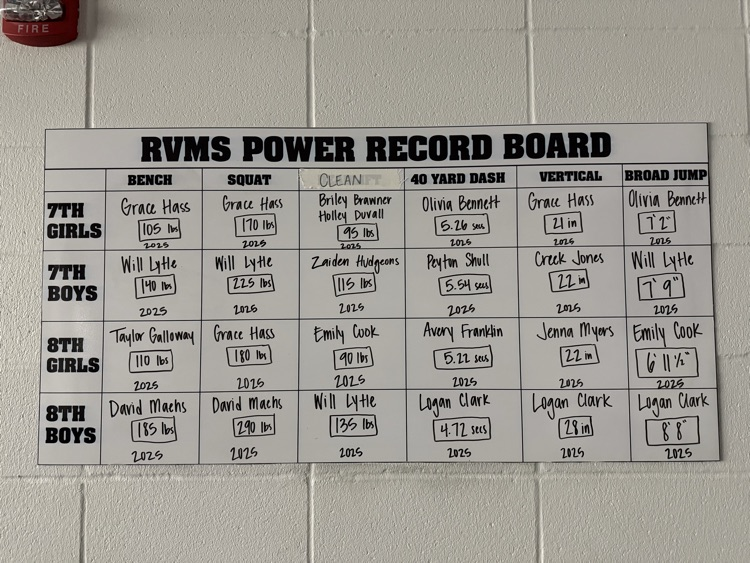 FIRE
RVMS POWER RECORD BOARD
BENCH SQUAT CLEAN 40 YARD DASH VERTICAL BROAD JUMP
7TH GIRLS
Grace Hass
105 lbs
2025
Grace Hass
170 lbs
2025
Briley Brawner
Holley Duvall
95 lbs
2025
Olivia Bennett
5.26 secs
2025
Grace Hass
21 in
2025
Olivia Bennett
7' 2"
2025
7TH BOYS
Will Lytle
140 lbs
2025
Will Lytle
225 lbs
2025
Zaiden Hudgeons
115 lbs
2025
Peyton Shull
5.54 secs
2025
Creek Jones
22 in
2025
Will Lytle
7' 9"
2025
8TH GIRLS
Taylor Galloway
110 lbs
2025
Grace Hass
180 lbs
2025
Emily Cook
90 lbs
2025
Avery Franklin
5.22 secs
2025
Jenna Myers
22 in
2025
Emily Cook
6' 11 1/2"
2025
8TH BOYS
David Maehs
185 lbs
2025
David Maehs
290 lbs
2025
Will Lytle
135 lbs
2025
Logan Clark
4.72 secs
2025
Logan Clark
28 in
2025
Logan Clark
8' 8"
2025